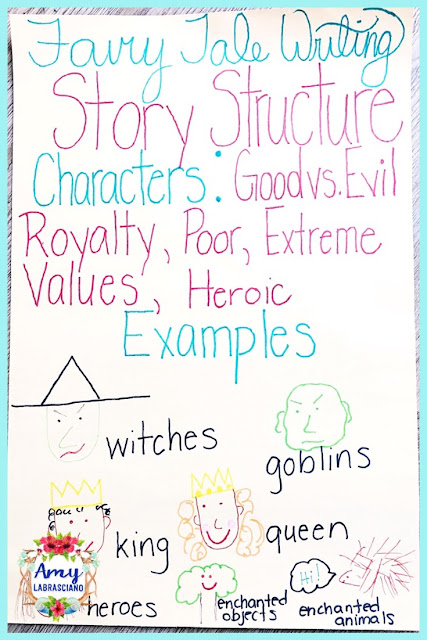 Fairy Tale Writing
Story Structure
Characters: Good vs. Evil
Royalty, Poor, Extreme
Values, Heroic
Examples
witches
goblins
king
queen
Amy
LABRASCIANO
heroes
enchanted
objects
Hi!
enchanted
animals